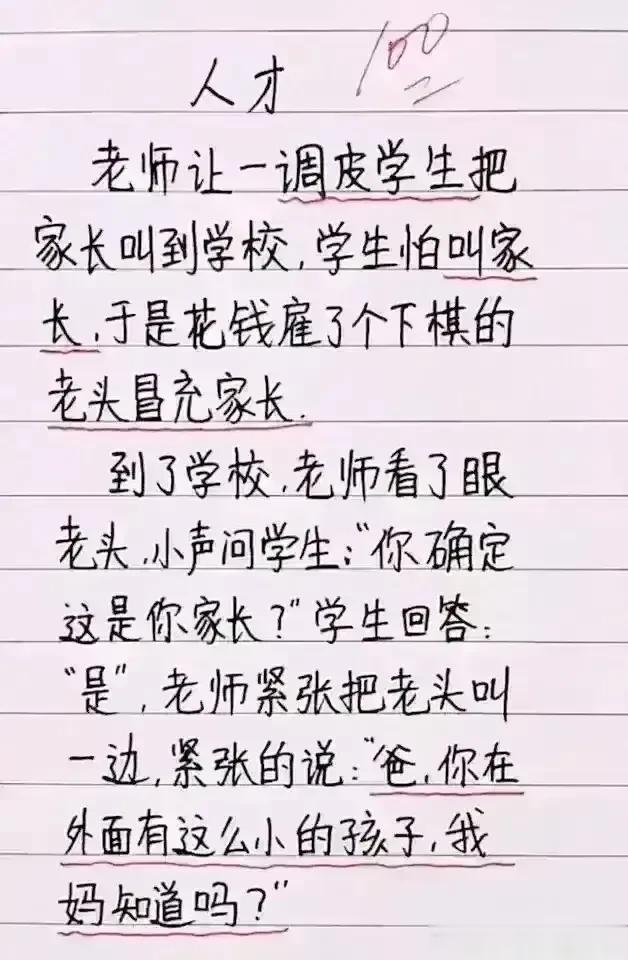 100
人才
老师让一调皮学生把
家长叫到学校,学生怕叫家
长,于是花钱雇了个下棋的
老头冒充家长.
到了学校,老师看了眼
老头,小声问学生:“你确定
这是你家长?”学生回答:
“是”,老师紧张把老头叫
一边,紧张的说:“爸,你在
外面有这么小的孩子,我
妈知道吗?”